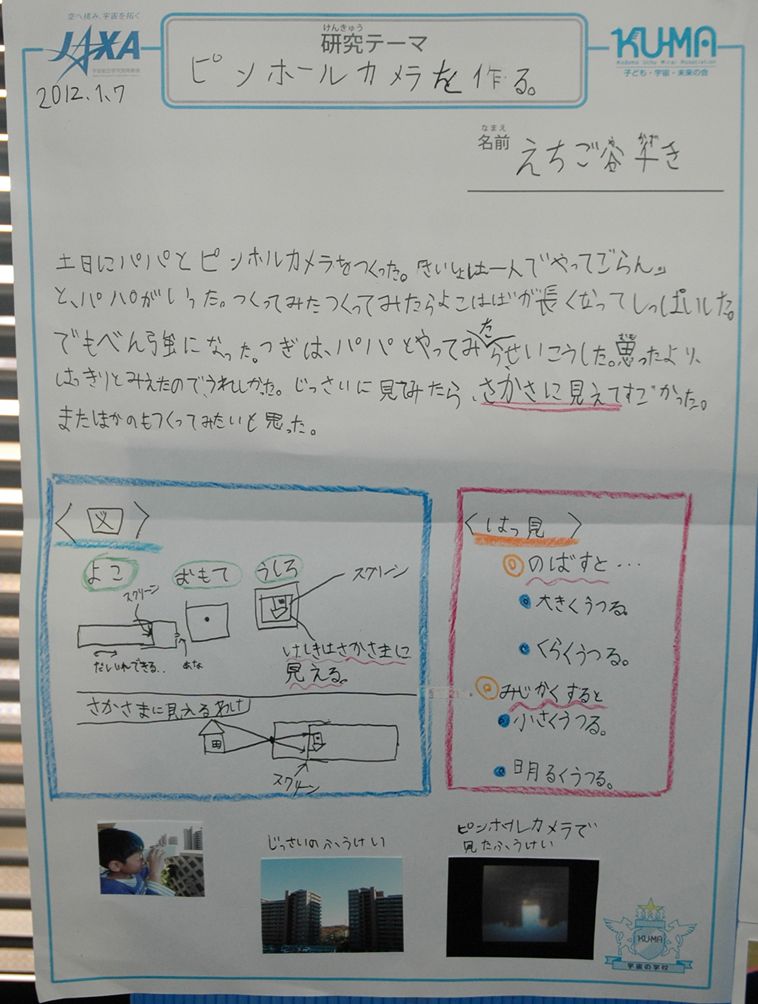 空へ挑み、宇宙を拓く
JAXA
けんきゅう
研究テーマ
ピンホールカメラを作る。
KU-MA
Kodomo Uchu Mirai Association
子ども・宇宙・未来の会
2012.1.7
なまえ
名前
えちご谷
土日にパパとピンホルカメラをつくった。さいしょは一人でやってごらん。
と、パパがいった。つくってみたつくってみたらよこはばが長くなってしっぱいした。
でもべん強になった。つぎは、パパとやってみたらせいこうした。思ったより、
はっきりとみえたのでうれしかった。じっさいに見てみたら、さかさに見えてすごかった。
またほかのもつくってみたいと思った。
〈図〉
よこ
おもて
うしろ
スクリーン
スクリーン
だしいれできる..
あな
けしきはさかさまに
見える。
さかさまに見えるわけ
スクリーン
〈はっ見〉
のばすと…
大きくうつる。
くらくうつる。
みじかくすると
小さくうつる。
明るくうつる。
じっさいのふうけい
ピンホルカメラで
見たふうけい
KU-MA
宇宙の学校